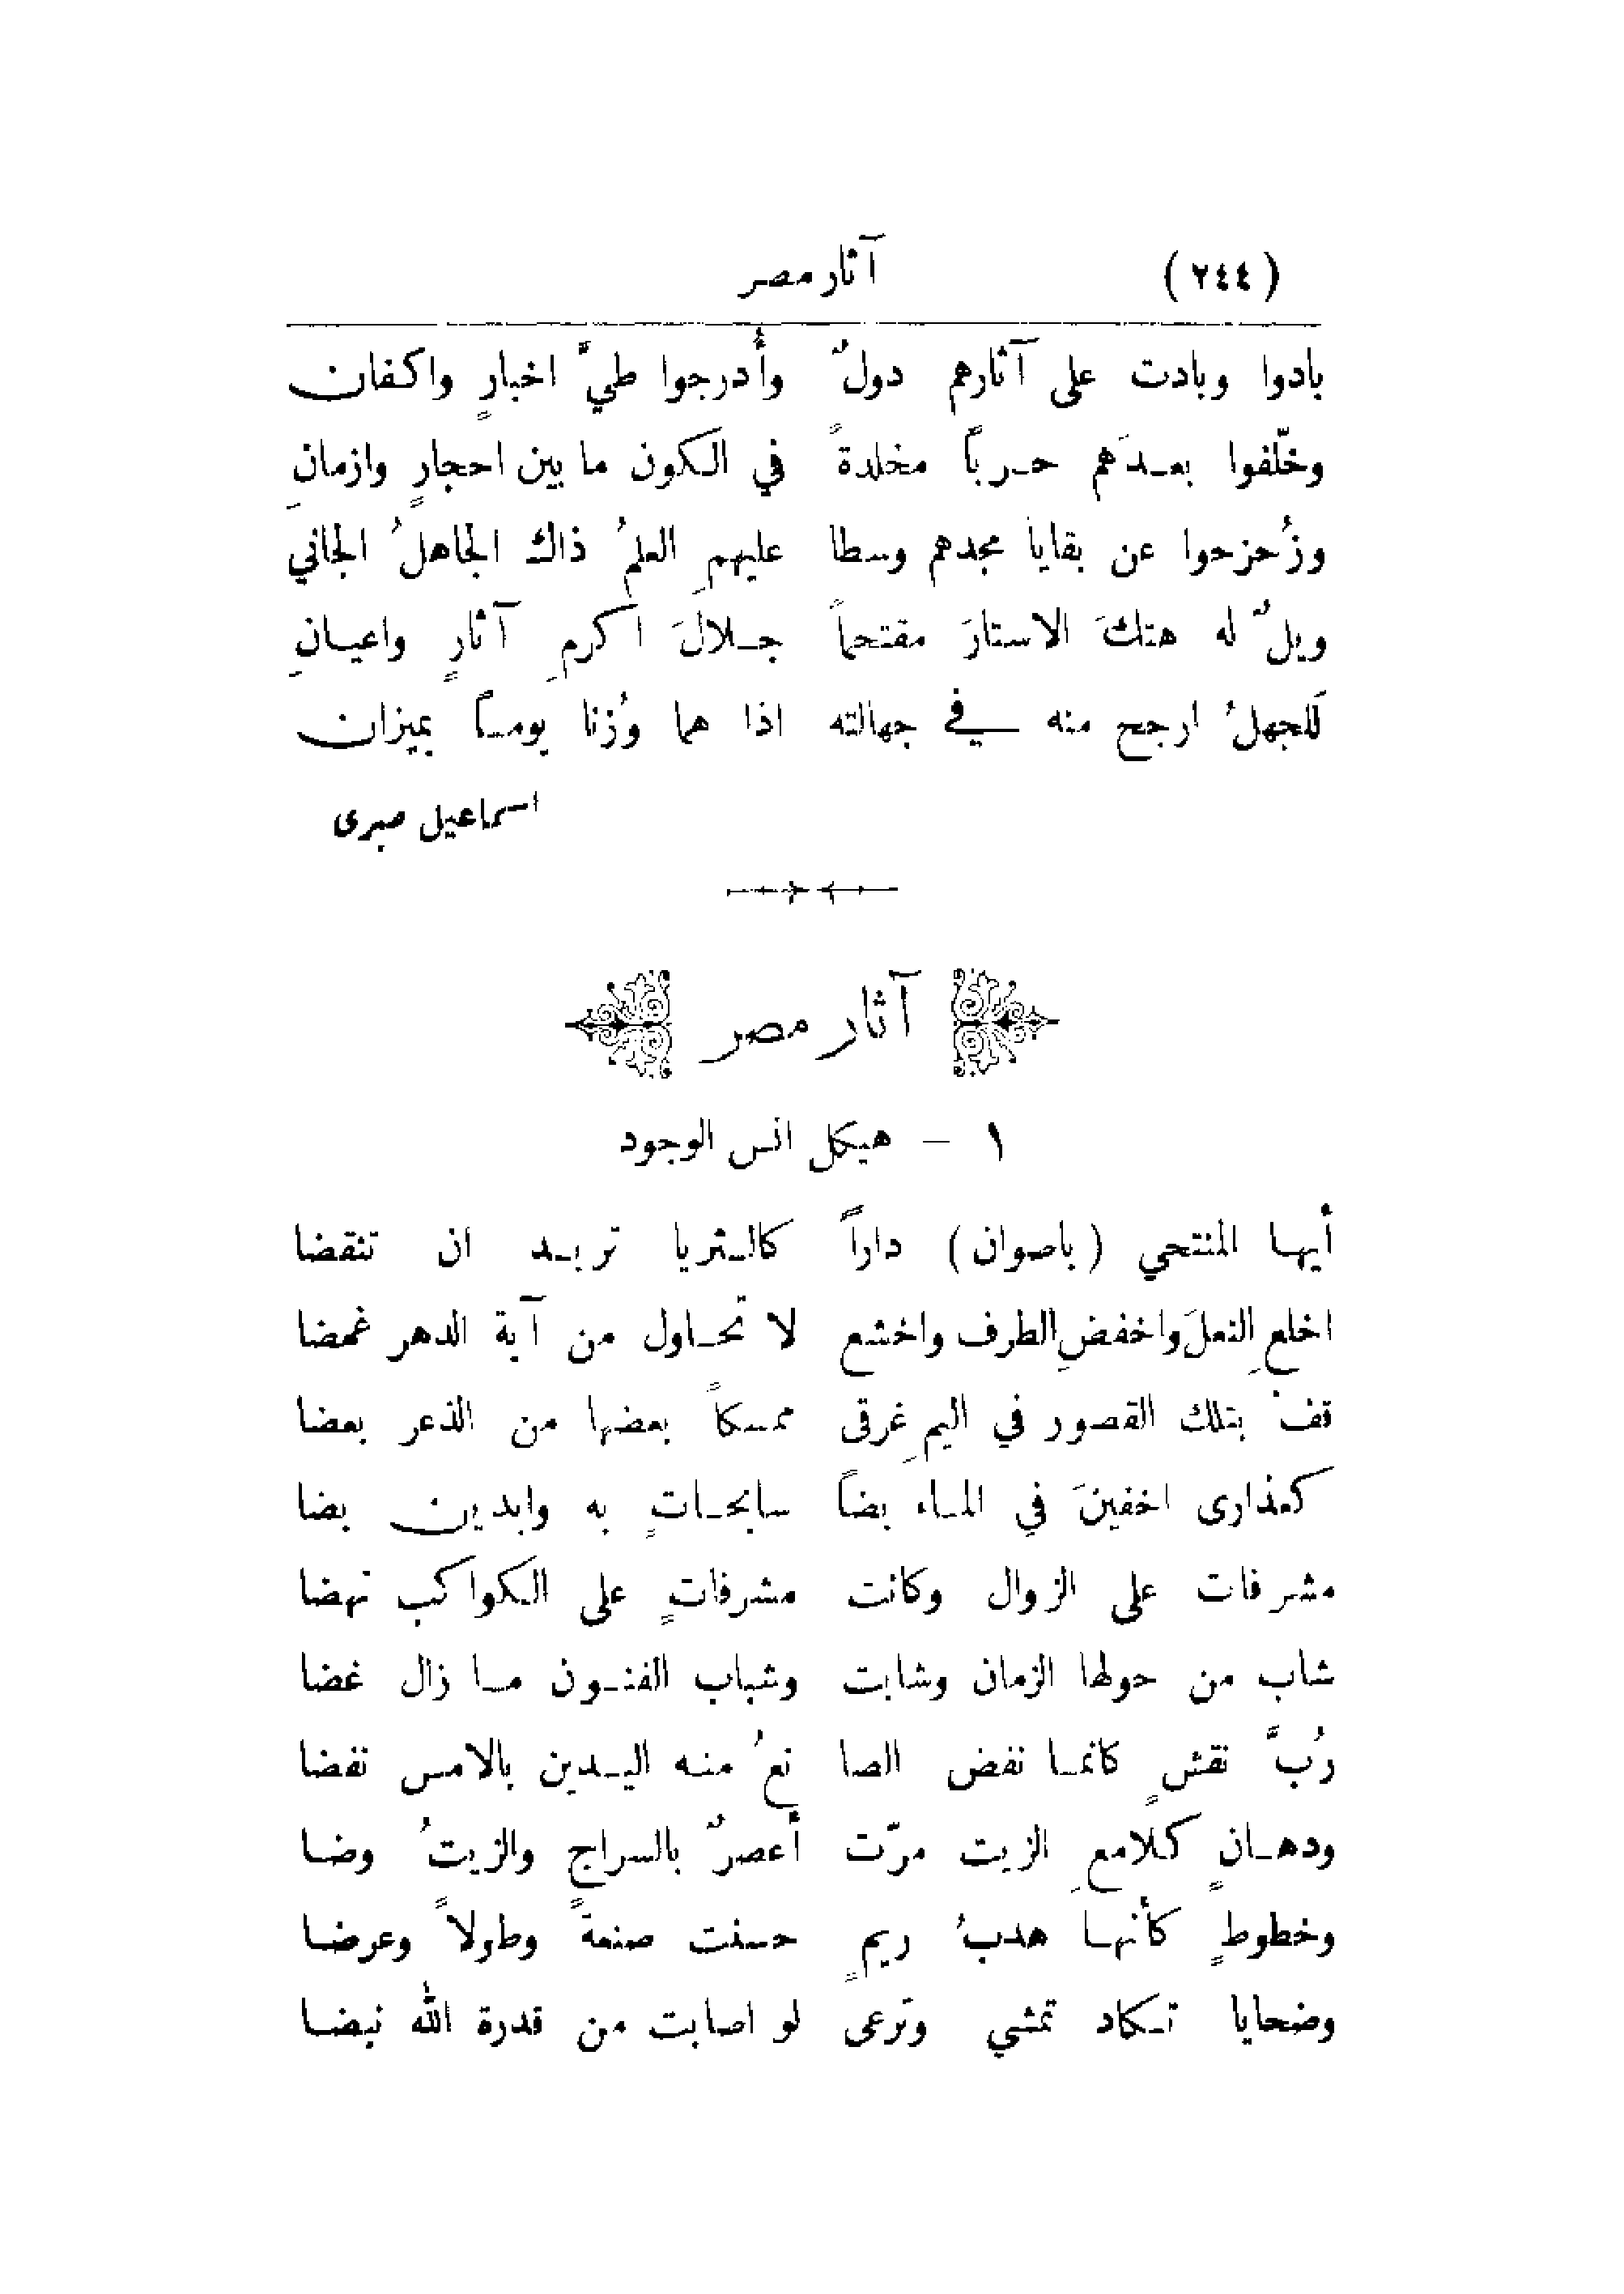 (٢٤٤) آثار مصر
بادوا وبادت على آثارهم دولٌ وأُدرجوا طيَّ اخبارٍ واكفان
وخلّفوا بعدَهم حرباً مخلدةً في الكون ما بين احجارٍ وازمانِ
وزُحزحوا عن بقايا مجدهم وسطا عليهمِ العلمُ ذاك الجاهلُ الجاني
ويلٌ له هتكَ الاستارَ مقتحماً جلالَ اكرمِ آثارٍ واعيانِ
لَلجهلُ ارجح منه في جهالته اذا هما وُزنا يوماً بميزان
اسماعيل صبرى
آثار مصر
١ – هيكل انس الوجود
أيها المنتحي (باصوان) داراً كالثريا تريد ان تنقضا
اخلعِ النعلَ واخفضِ الطرف واخشع لا تحاول من آية الدهر غمضا
قف بتلك القصور في اليمِ غرقى ممسكاً بعضها من الذعر بعضا
كعذارى اخفينَ في الماء بضاً سابحاتٍ به وابدين بضا
مشرفات على الزوال وكانت مشرفاتٍ على الكواكب نهضا
شاب من حولها الزمان وشابت وشباب الفنون ما زال غضا
رُبَّ نقشٍ كانما نفض الصا نعُ منه اليدين بالامس نفضا
ودهانٍ كلامعِ الزيت مرّت أعصرٌ بالسراج والزيتُ وضا
وخطوطٍ كأنها هدبُ ريمٍ حسنت صنعةً وطولاً وعرضا
وضحايا تكاد تمشي وترعى لو اصابت من قدرة الله نبضا